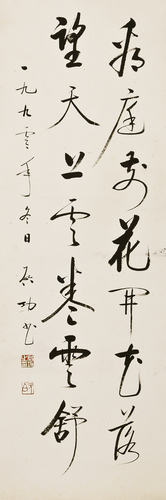 看庭前花开花落
望天上云卷云舒
一九九零年冬日 启功书